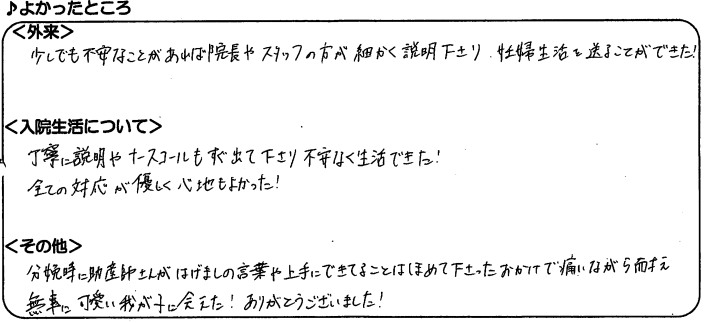 ♪よかったところ
＜外来＞
少しでも不安なことがあれば院長やスタッフの方が細かく説明下さり、妊婦生活を送ることができた!
＜入院生活について＞
丁寧に説明やナースコールもすぐ出て下さり不安なく生活できた!
全ての対応が優しく心地もよかった!
＜その他＞
分娩時に助産師さんがはげましの言葉や上手にできてることはほめて下さったおかげで痛いながら耐え
無事に可愛い我が子に会えた! ありがとうございました!